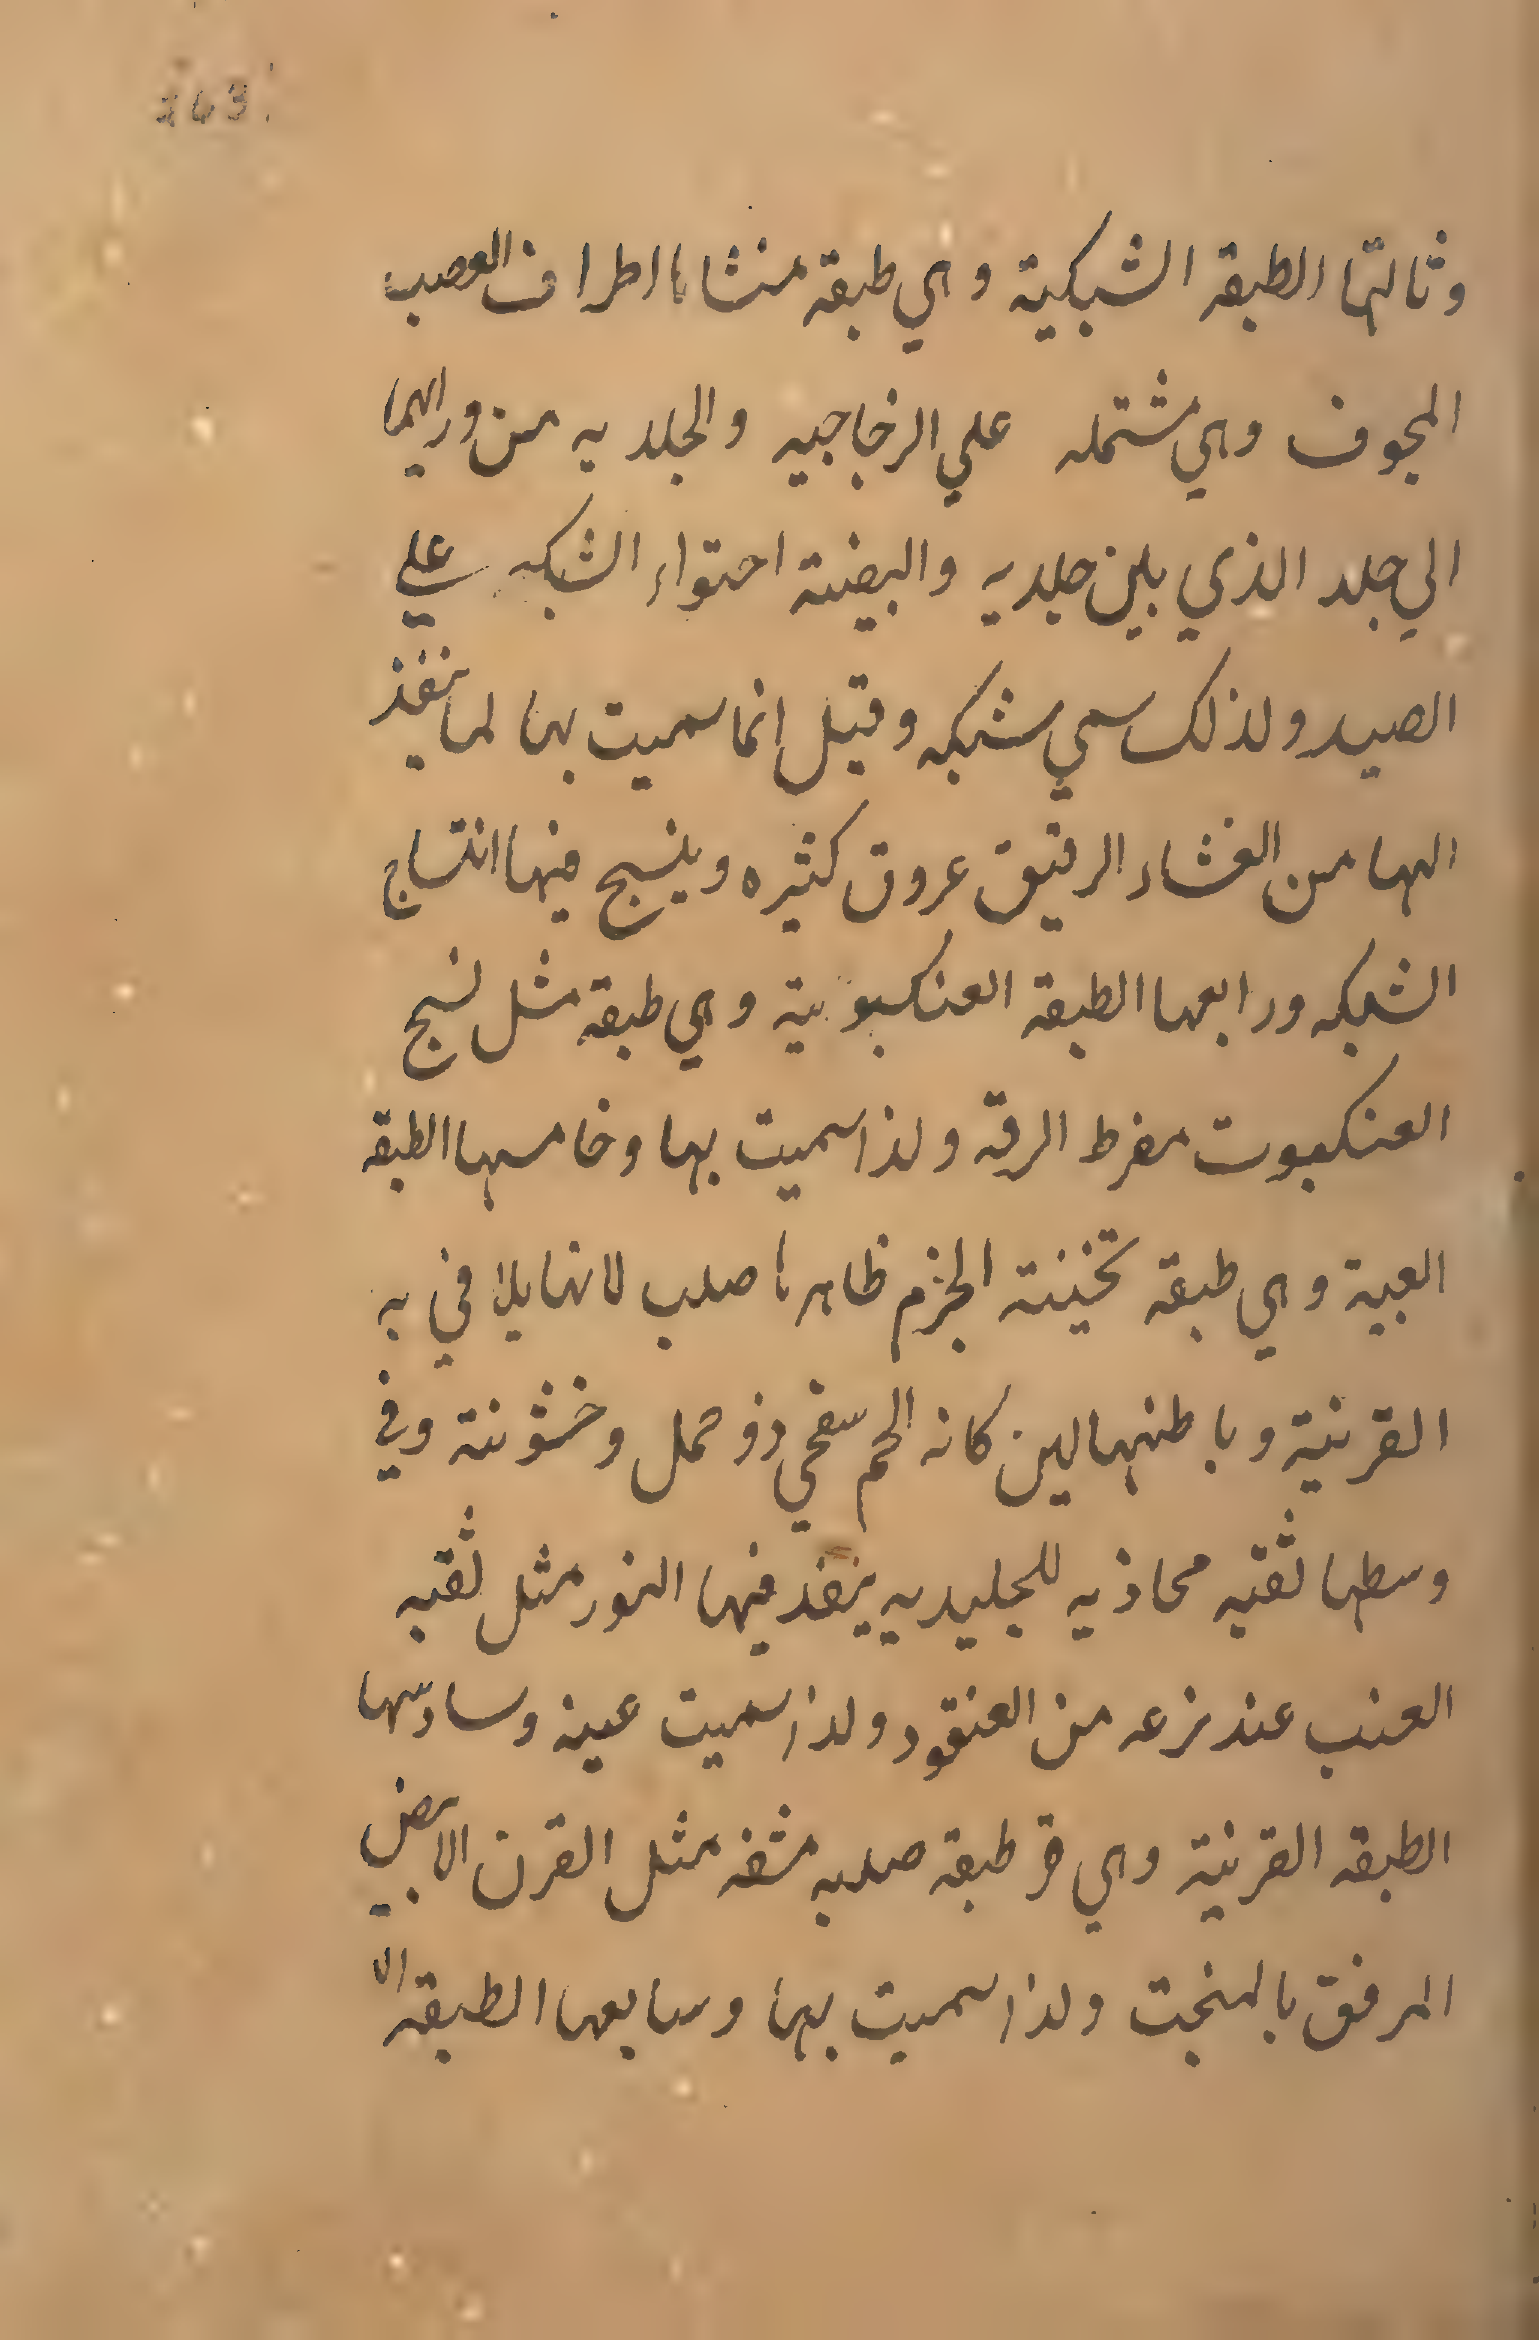 263
وثالثها الطبقه الشبكية وهي طبقه منشاها اطراف العصب
المجوف وهي مشتمله علي الزجاجيه والجلديه من ورايهما
الي جلد الذي بلين جلديه والبيضية احتواء الشبكه علي
الصيد ولذلك سمي شبكه وقيل انما سميت بها لما ينفذ
الها من الغشاء الرقيق عروق كثيره وينسج فيها انتساج
الشبكه ورابعها الطبقه العنكبوتية وهي طبقه مثل نسج
العنكبوت مفرط الرقه ولذا سميت بها وخامسها الطبقه
العبية وهي طبقه تخينة الجرم ظاهرها صلب لانها يلا في به
القرنية وباطنها لين كانه الحم سفحي ذو خمل وخشونة وفي
وسطها ثقبه محاذيه للجليديه ينفذ فيها النور مثل ثقبه
العنب عند نزعه من العنقود ولذا سميت عبيه وسادسها
الطبقه القرنية وهي طبقه صلبه مشفه مثل القرن الابيض
المرفق بالمنحت ولذا سميت بها وسابعها الطبقه الا